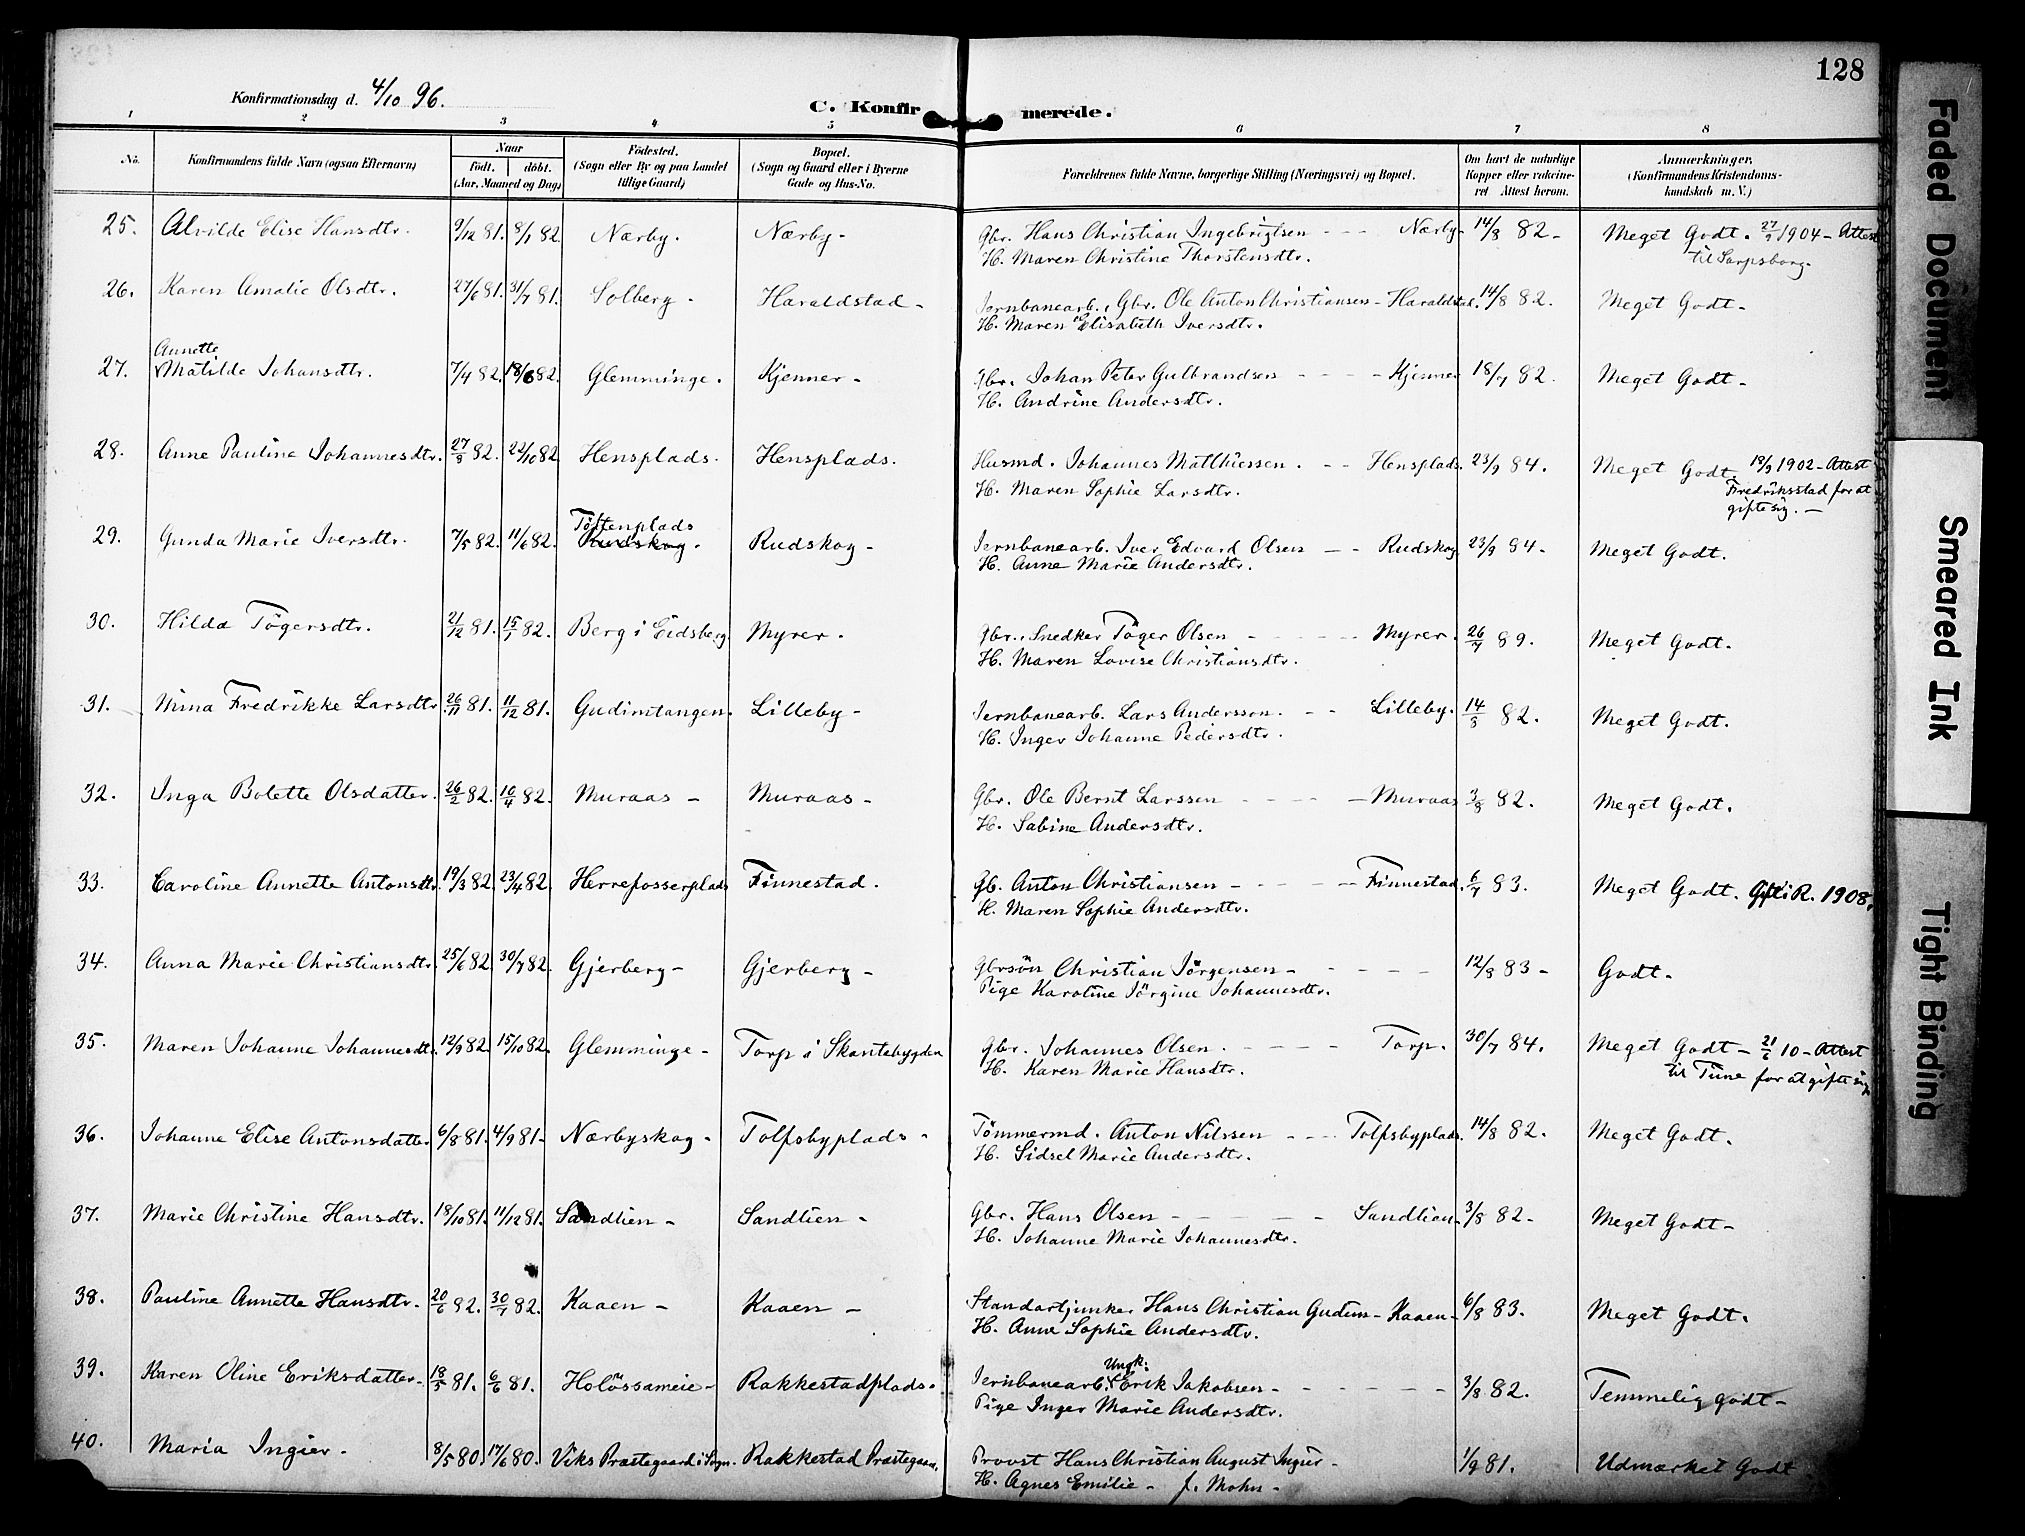 128
Konfirmationsdag d. 4/10 96.
C. Konfirmerede.
1 2 3 4 5 6 7 8
No. Konfirmandens fulde Navn (ogsaa Efternavn) Naar født. døbt. (Aar, Maaned og Dag) Fødested. (Sogn eller By og paa Landet tillige Gaard) Bopæl. (Sogn og Gaard eller i Byerne Gade og Hus-No. Forældrenes fulde Navne, borgerlige Stilling (Næringsvei) og Bopæl. Om havt de naturlige Kopper eller vakcineret Attest herom. Anmærkninger. (Konfirmandens Kristendomskundskab m. V.)
25. Alvilde Elise Hansdtr. 9/12 81. 8/1 82. Nærby. Nærby- Gbr. Hans Christian Ingebrigtsen - - - Nærby- 14/8 82- Meget Godt. 27/9 1904- Attest
H. Maren Christine Thorstensdtr. til Sarpsborg.
26. Karen Amalie Olsdtr. 27/6 81. 31/7 81. Solberg- Haraldstad- Jernbanearb., Gbr. Ole Anton Christiansen- Haraldstad. 14/8 82. Meget Godt-
H. Maren Elisabeth Iversdtr.
Annette
27. Matilde Johansdtr. 7/4 82. 18/6 82. Glemminge. Kjenner- Gbr. Johan Peter Gulbrandsen - - - Kjenner 18/7 82. Meget Godt-
H. Andrine Andersdtr.
28. Anne Pauline Johannesdtr. 27/8 82. 22/10 82 Hensplads. Hensplads. Husmd. Johannes Matthiessen. - - Hensplads. 23/9 84. Meget Godt- 19/9 1902- Attest
H. Maren Sophie Larsdtr. Fredriksstad for at
gifte sig. -
Töftenplads
29. Gunda Marie Iversdtr. 7/5 82. 11/6 82. Rudskog. Rudskog- Jernbanearb. Iver Edvard Olsen - - Rudskog 23/9 84- Meget Godt.
H. Anne Marie Andersdtr.
30. Hilda Tögersdtr. 21/12 81. 15/1 82. Berg i Eidsberg Myrer. Gbr., Snedker Töger Olsen - - - - Myrer. 26/7 89. Meget Godt.
H. Maren Lovise Christiansdtr.
31. Mina Fredrikke Larsdtr 26/11 81. 11/12 81. Gudimtangen. Lilleby- Jernbanearb. Lars Andersson. - - Lilleby. 14/8 82. Meget Godt.
H. Inger Johanne Pedersdtr.
32. Inga Bolette Olsdatter. 26/2 82. 10/4 82. Muraas- Muraas- Gbr. Ole Bernt Larssen - - - - Muraas 3/8 82. Meget Godt.
H. Sabine Andersdtr.
33. Caroline Annette Antonsdtr. 19/3 82. 23/4 82. Herrefosserplads Finnestad. Gb. Anton Christiansen - - - - Finnestad. 6/7 83. Meget Godt. Gift i R. 1908.
H. Maren Sophie Andersdtr.
34. Anna Marie Christiansdtr. 25/6 82. 30/7 82. Gjerberg- Gjerberg- Gbrsön Christian Jörgensen- - - - - 12/8 83- Godt-
Pige Karoline Jörgine Johannesdtr.
35. Maren Johanne Johannesdtr. 12/9 82. 15/10 82. Glemminge- Torp i Skantebygden Gbr. Johannes Olsen. - - - - Torp. 30/7 84. Meget Godt- 21/6 10- Attest
H. Karen Marie Hansdtr. til Tune for at gifte sig
36. Johanne Elise Antonsdatter. 6/8 81. 4/9 81- Nærbyskog- Tolfsbyplads- Tömmermd. Anton Nilssen - - - Tolfsbyplads. 14/8 82. Meget Godt.
H. Sidsel Marie Andersdtr.
37. Marie Christine Hansdtr. 18/10 81. 11/12 81. Sandlien- Sandlien- Gbr. Hans Olsen - - - - - Sandlien- 3/8 82- Meget Godt-
H. Johanne Marie Johannesdtr.
38. Pauline Annette Hansdtr. 20/6 82. 30/7 82. Kaaen- Kaaen- Standartjunker Hans Christian Gudim- Kaaen- 6/8 83. Meget Godt.
H. Anne Sophie Andersdtr.
Ungk.
39. Karen Oline Eriksdatter- 18/5 81. 6/6 81. Holössameie- Rakkestadplads. Jernbanearb. Erik Jakobsen- - - - - 3/8 82. Temmelig godt-
Pige Inger Marie Andersdtr.
40. Maria Ingier. 8/5 80. 17/6 80. Viks Præstegaard i Sogn. Rakkestad Præstegaard. Provst Hans Christian August Ingier- 1/9 81. Udmærket Godt
H. Agnes Emilie- f. Mohn-
Faded Document
Smeared Ink
Tight Binding